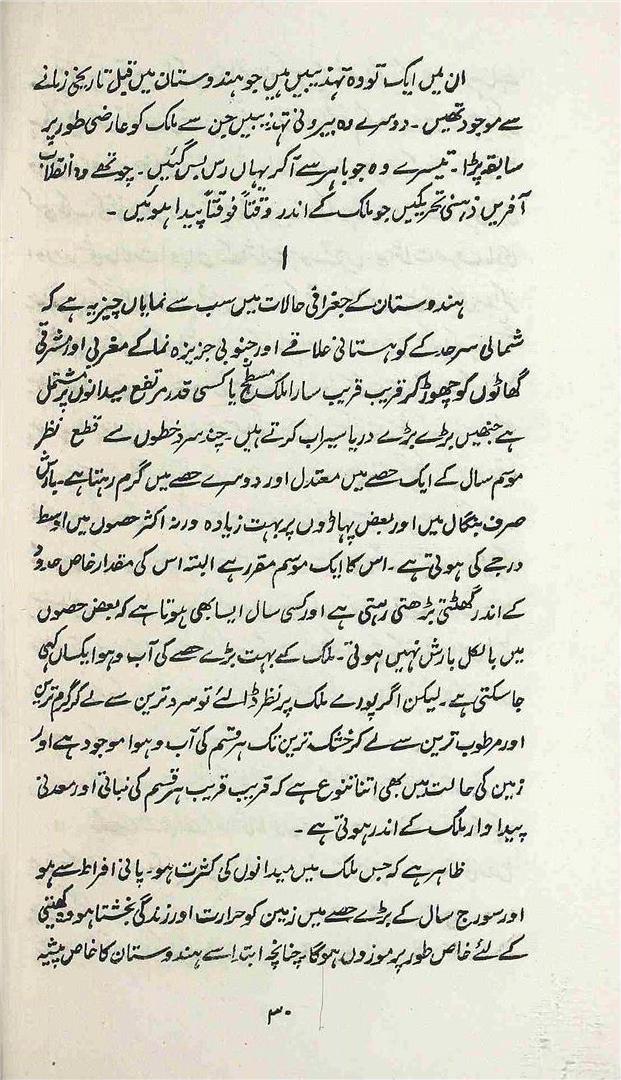 ان میں ایک تو وہ تہذیبیں ہیں جو ہندوستان میں قبل تاریخی زمانے
سے موجود تھیں۔ دوسرے وہ بیرونی تہذیبیں جن سے ملک کو عارضی طور پر
سابقہ پڑا۔ تیسرے وہ جو باہر سے آکر یہاں رس بس گئیں۔ چوتھے وہ انقلاب
آفریں ذہنی تحریکیں جو ملک کے اندر وقتاً فوقتاً پیدا ہوئیں۔
۱
ہندوستان کے جغرافی حالات میں سب سے نمایاں چیز یہ ہے کہ
شمالی سرحد کے کوہستانی علاقے اور جنوبی جزیرہ نما کے مغربی اور مشرقی
گھاٹوں کو چھوڑ کر قریب قریب سارا ملک مسطح یا کسی قدر مرتفع میدانوں پر مشتمل
ہے جنھیں بڑے بڑے دریا سیراب کرتے ہیں۔ چند سرد خطوں سے قطع نظر
موسم سال کے ایک حصے میں معتدل اور دوسرے حصے میں گرم رہتا ہے۔ بارش
صرف بنگال میں اور بعض پہاڑوں پر بہت زیادہ ورنہ اکثر حصوں میں اوسط
درجے کی ہوتی ہے۔ اس کا ایک موسم مقرر ہے البتہ اس کی مقدار خاص حدود
کے اندر گھٹتی بڑھتی رہتی ہے اور کسی سال ایسا بھی ہوتا ہے کہ بعض حصوں
میں بالکل بارش نہیں ہوتی۔ ملک کے بہت بڑے حصے کی آب و ہوا یکساں کہی
جا سکتی ہے۔ لیکن اگر پورے ملک پر نظر ڈالئے تو سرد ترین سے لے کر گرم ترین
اور مرطوب ترین سے لے کر خشک ترین تک ہر قسم کی آب و ہوا موجود ہے اور
زمین کی حالت میں بھی اتنا تنوع ہے کہ قریب قریب ہر قسم کی نباتی اور معدنی
پیداوار ملک کے اندر ہوتی ہے۔
ظاہر ہے کہ جس ملک میں میدانوں کی کثرت ہو۔ پانی افراط سے ہو
اور سورج سال کے بڑے حصے میں زمین کو حرارت اور زندگی بخشتا ہو وہ کھیتی
کے لئے خاص طور پر موزوں ہوگا چنانچہ ابتدا سے ہندوستان کا خاص پیشہ
۳۰